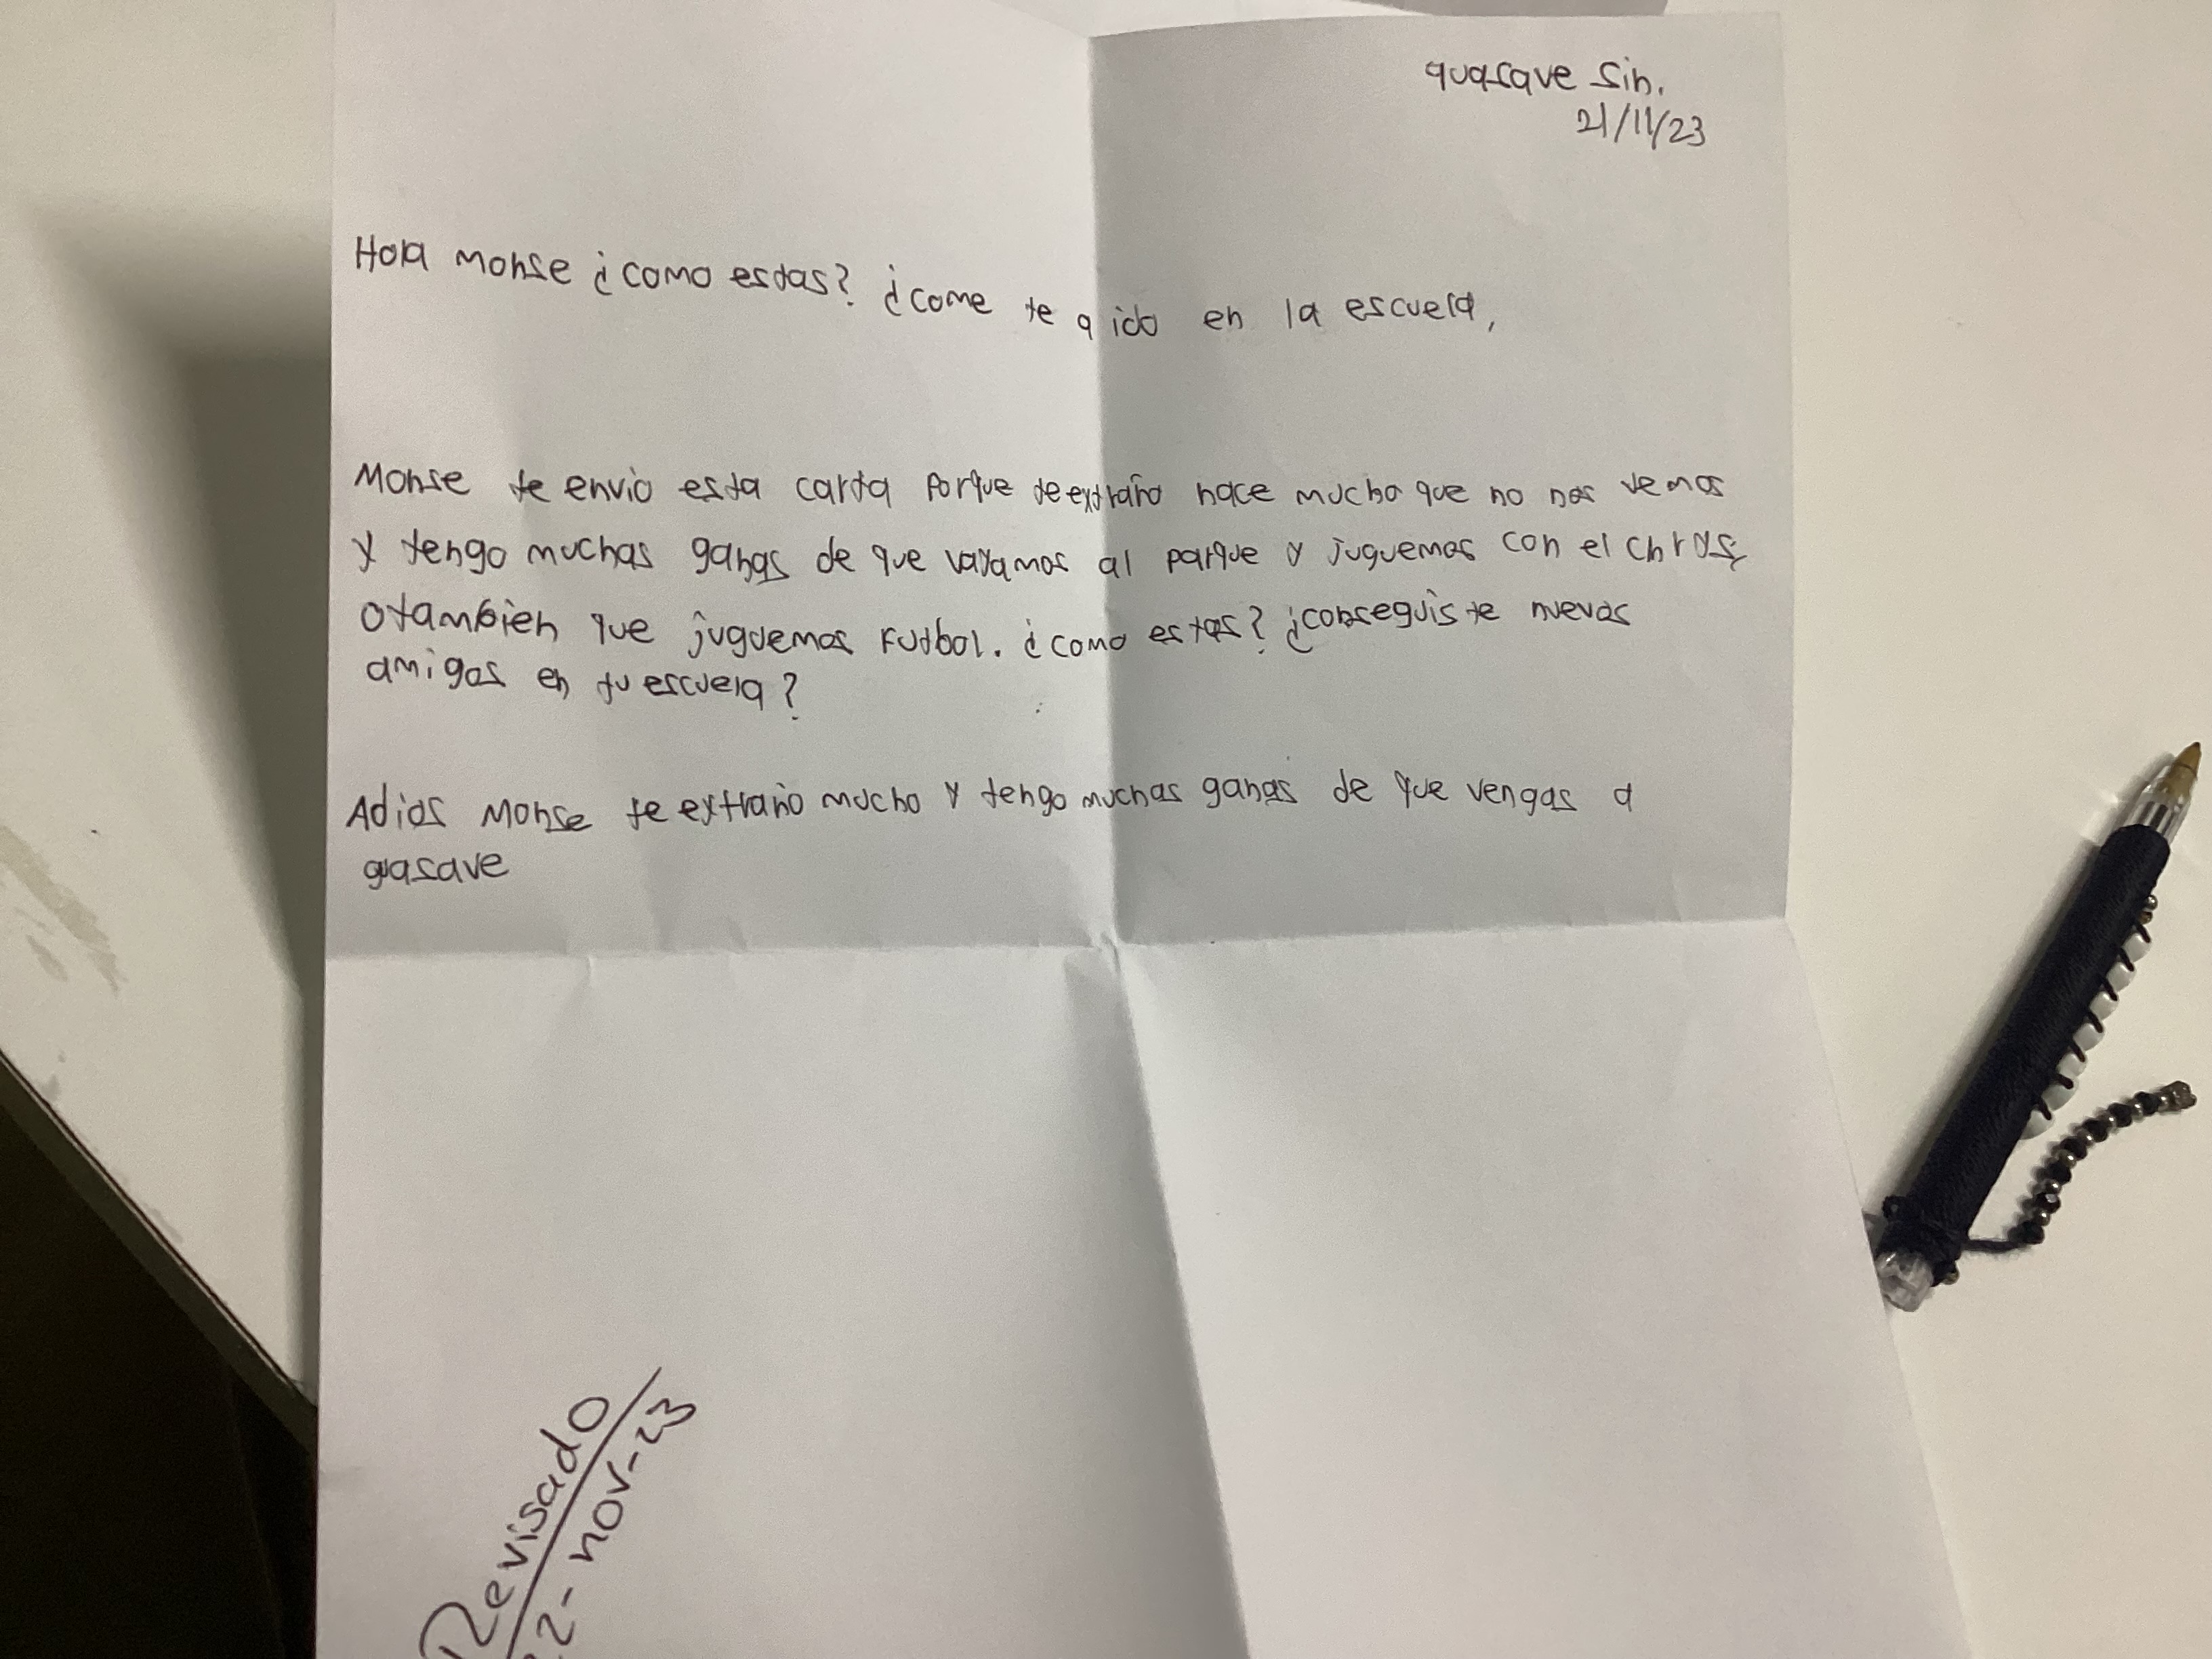 guasave Sin.
21/11/23
Hola monse ¿como estas? ¿come te a ido en la escuela,
Monse te envio esta carta porque te extraño hace mucho que no nos vemos
y tengo muchas ganas de que vayamos al parque y juguemos con el
o tambien que juguemos Futbol. ¿como estas? ¿conseguiste nuevos
amigos en tu escuela?
Adios Monse te extraño mucho y tengo muchas ganas de que vengas a
guasave
Revisado
22-nov-23